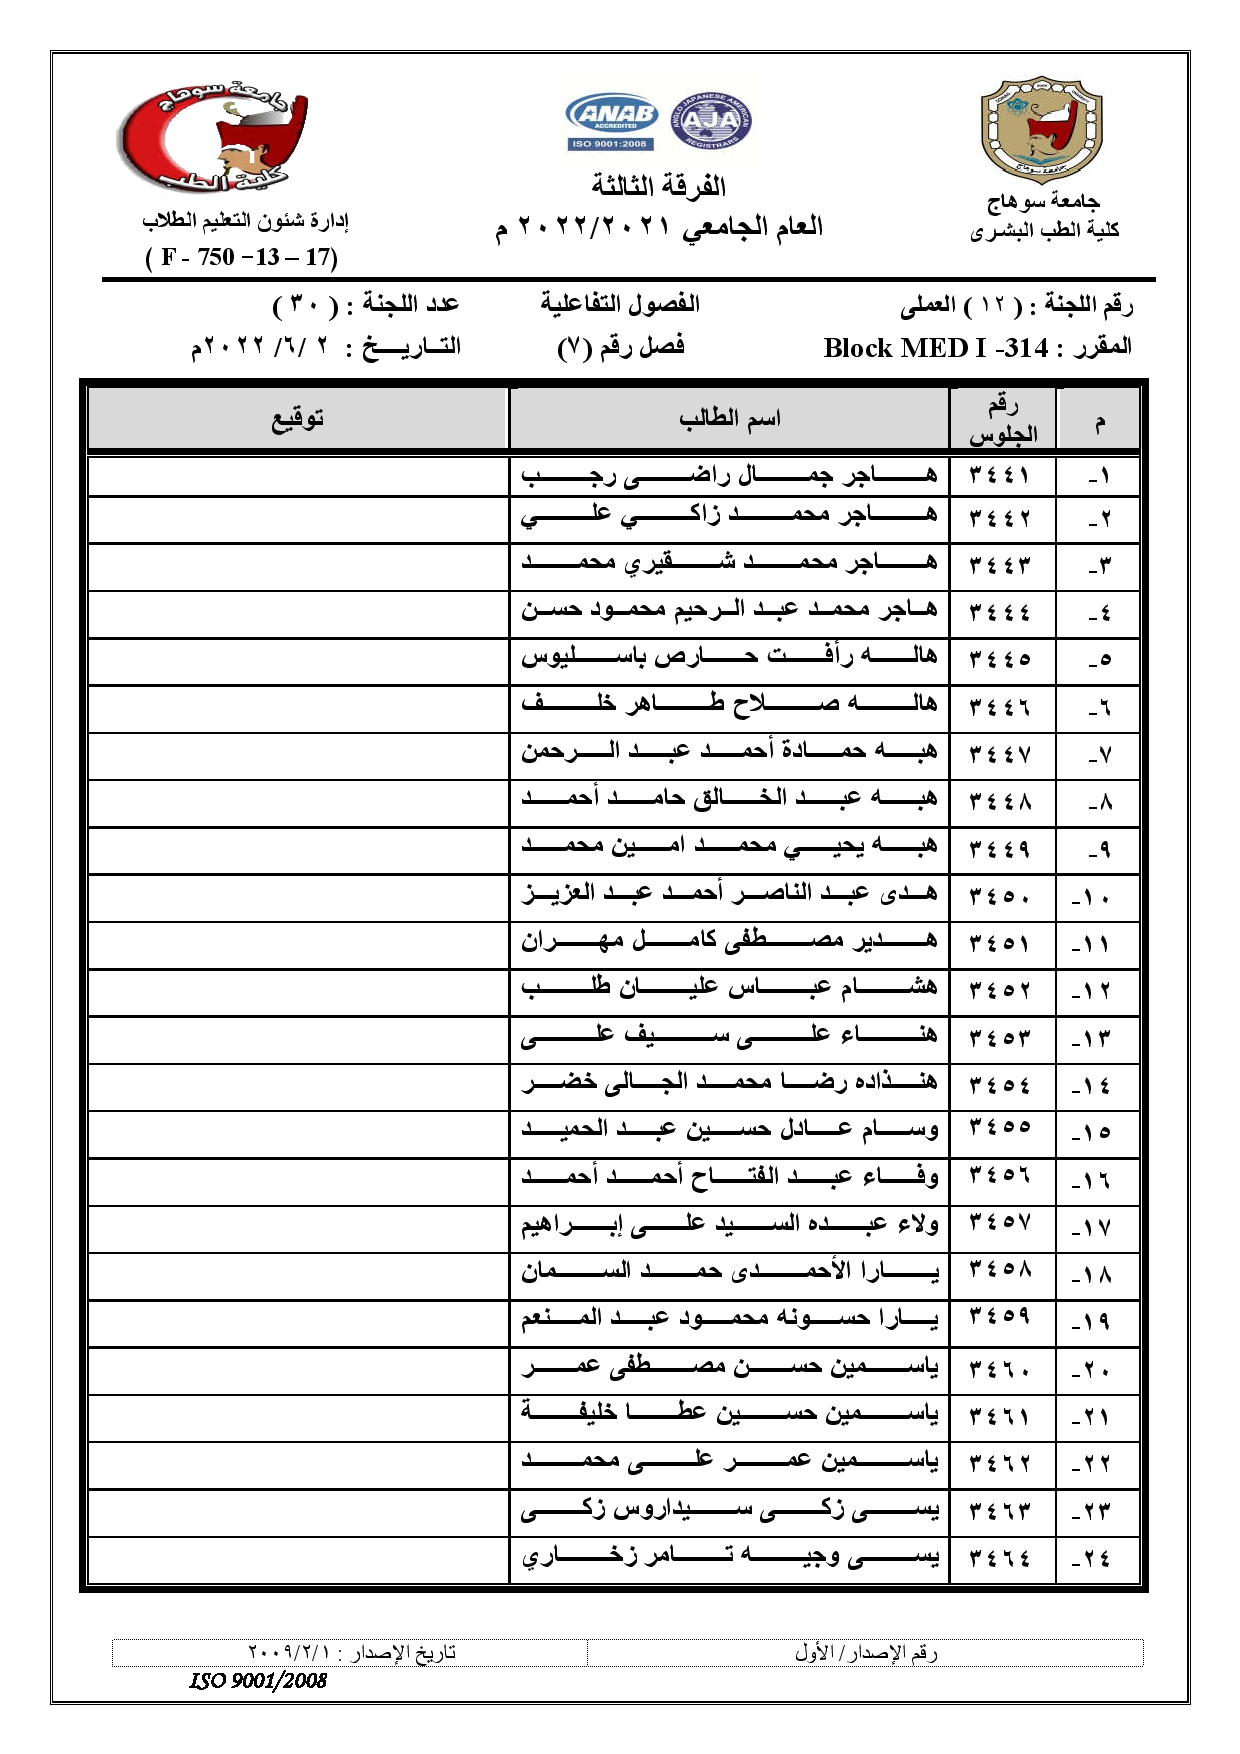 جامعة سوهاج
كلية الطب
ANAB
ACCREDITED
ISO 9001:2008
ANGLO JAPANESE AMERICAN
AJA
REGISTRARS
جامعة سوهاج
جامعة سوهاج
كلية الطب البشرى
الفرقة الثالثة
العام الجامعي ٢٠٢٢/٢٠٢١ م
إدارة شئون التعليم الطلاب
( F - 750 -13 – 17)
رقم اللجنة : ( ١٢ ) العملى الفصول التفاعلية عدد اللجنة : ( ٣٠ )
المقرر : Block MED I -314 فصل رقم (٧) التاريخ : ٢ /٦/ ٢٠٢٢م
م رقم الجلوس اسم الطالب توقيع
١- ٣٤٤١ هاجر جمال راضى رجب
٢- ٣٤٤٢ هاجر محمد زاكي علي
٣- ٣٤٤٣ هاجر محمد شقيري محمد
٤- ٣٤٤٤ هاجر محمد عبد الرحيم محمود حسن
٥- ٣٤٤٥ هاله رأفت حارص باسليوس
٦- ٣٤٤٦ هاله صلاح طاهر خلف
٧- ٣٤٤٧ هبه حمادة أحمد عبد الرحمن
٨- ٣٤٤٨ هبه عبد الخالق حامد أحمد
٩- ٣٤٤٩ هبه يحيي محمد امين محمد
١٠- ٣٤٥٠ هدى عبد الناصر أحمد عبد العزيز
١١- ٣٤٥١ هدير مصطفى كامل مهران
١٢- ٣٤٥٢ هشام عباس عليان طلب
١٣- ٣٤٥٣ هناء على سيف على
١٤- ٣٤٥٤ هنذاده رضا محمد الجالى خضر
١٥- ٣٤٥٥ وسام عادل حسين عبد الحميد
١٦- ٣٤٥٦ وفاء عبد الفتاح أحمد أحمد
١٧- ٣٤٥٧ ولاء عبده السيد على إبراهيم
١٨- ٣٤٥٨ يارا الأحمدى حمد السمان
١٩- ٣٤٥٩ يارا حسونه محمود عبد المنعم
٢٠- ٣٤٦٠ ياسمين حسن مصطفى عمر
٢١- ٣٤٦١ ياسمين حسين عطا خليفة
٢٢- ٣٤٦٢ ياسمين عمر على محمد
٢٣- ٣٤٦٣ يسى زكى سيداروس زكى
٢٤- ٣٤٦٤ يسى وجيه تامر زخاري
رقم الإصدار/ الأول تاريخ الإصدار : ٢٠٠٩/٢/١
ISO 9001/2008